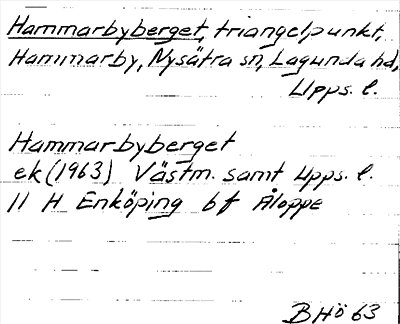 Hammarbyberget, triangelpunkt,
Hammarby, Nysätra sn, Lagunda hd,
Upps. l.
Hammarbyberget
ek (1963) Västm. samt Upps. l.
11 H Enköping 6f Åloppe
BHö 63